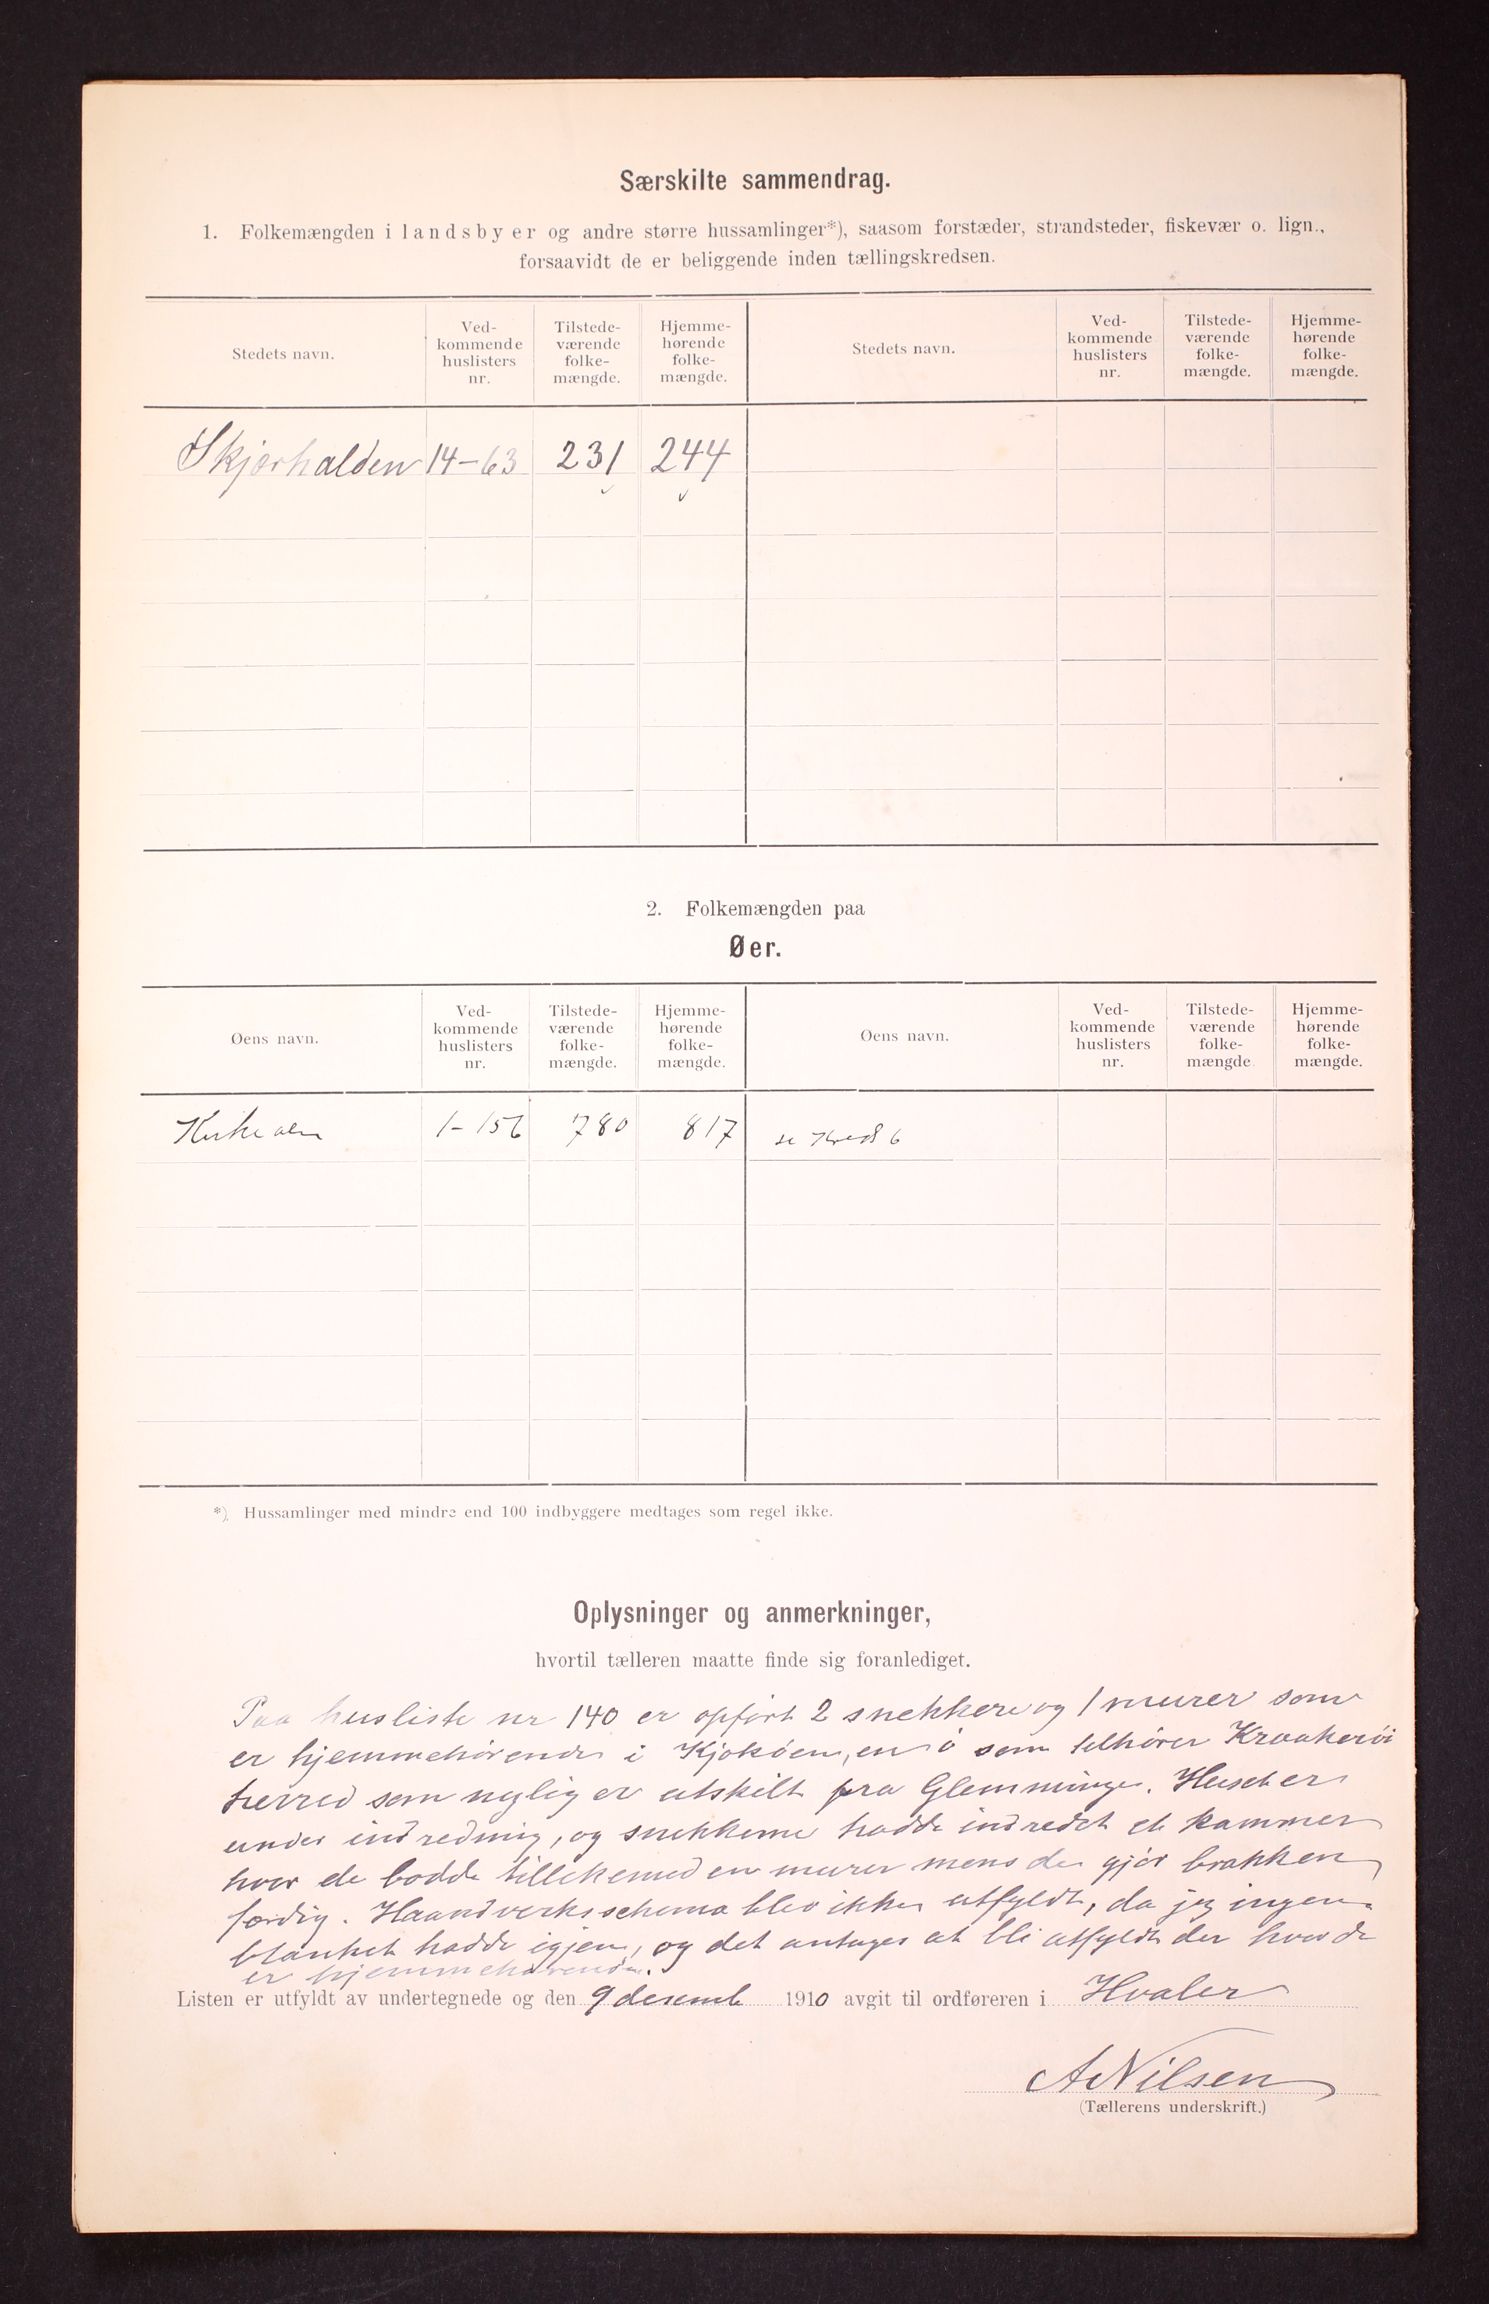 Særskilte sammendrag.
1. Folkemængden i landsbyer og andre større hussamlinger*), saasom forstæder, strandsteder, fiskevær o. lign.,
forsaavidt de er beliggende inden tællingskredsen.
Stedets navn. Ved-kommende huslisters nr. Tilstede-værende folke-mængde. Hjemme-hørende folke-mængde. Stedets navn. Ved-kommende huslisters nr. Tilstede-værende folke-mængde. Hjemme-hørende folke-mængde.
Skjærhalden 14-63 231 244
2. Folkemængden paa
Øer.
Øens navn. Ved-kommende huslisters nr. Tilstede-værende folke-mængde. Hjemme-hørende folke-mængde. Øens navn. Ved-kommende huslisters nr. Tilstede-værende folke-mængde Hjemme-hørende folke-mængde.
Kirkeøen 1-156 780 817 se Kreds 6
*) Hussamlinger med mindre end 100 indbyggere medtages som regel ikke.
Oplysninger og anmerkninger,
hvortil tælleren maatte finde sig foranlediget.
Paa husliste nr 140 er opført 2 snekkere og 1 murer som
er hjemmehørende i Kjøkøen, en ö som tilhører Kraakerøi
herred som nylig er utskilt fra Glemminge. Huset er
under indredning, og snekkerne hadde indredet et kammer
hvor de bodde tillikemed en murer mens de gjør brakken
færdig. Haandverksschema blev ikke utfyldt, da jeg ingen
blanket hadde igjen, og det antages at bli utfyldt der hvor de
er hjemmehørende.
Listen er utfyldt av undertegnede og den 9 desemb 1910 avgit til ordføreren i Hvaler
A Nilsen
(Tællerens underskrift.)